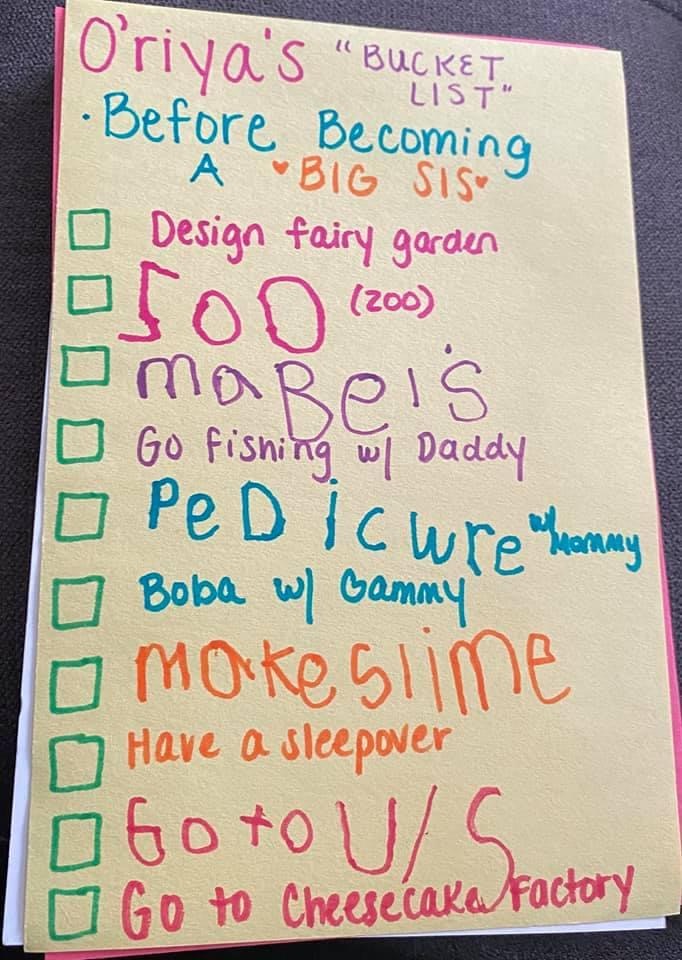 O'riya's "BUCKET
LIST"
· Before Becoming
A ♥BIG SIS♥
Design fairy garden
ZOO (zoo)
maBel's
Go fishing w/ Daddy
PeDicure w/ Mommy
Boba w/ Gammy
make slime
Have a sleepover
Go to U/S
Go to Cheesecake Factory